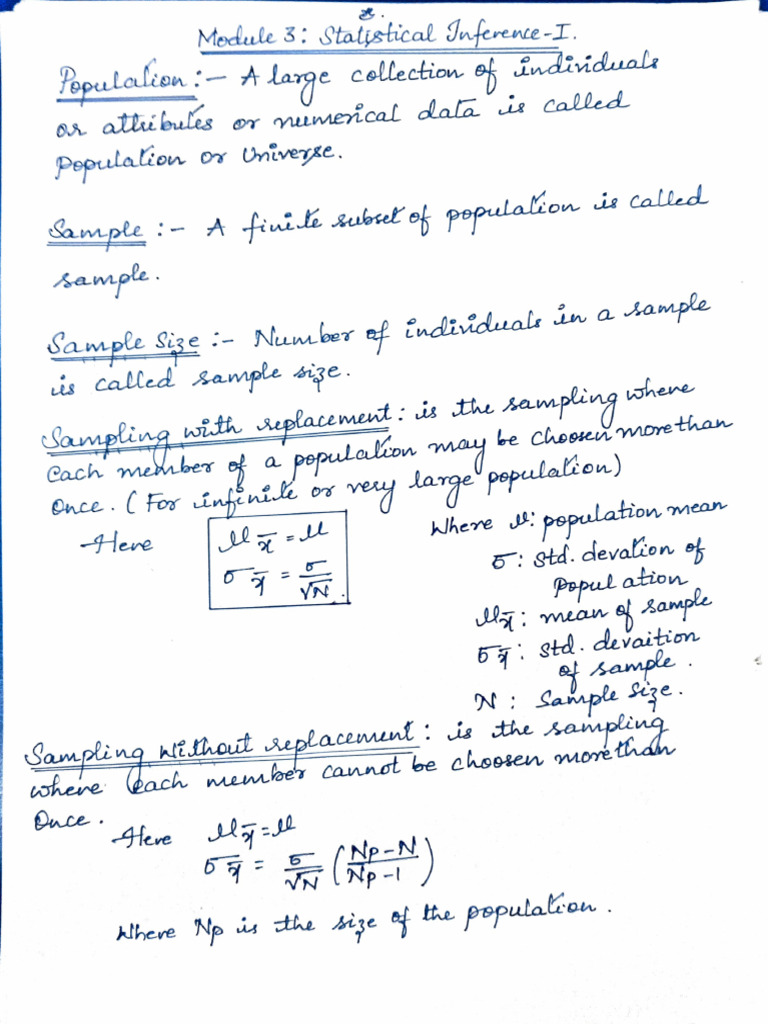 Module 3: Statistical Inference-I.
Population :- A large collection of individuals
or attributes or numerical data is called
Population or Universe.
Sample :- A finite subset of population is called
sample.
Sample Size :- Number of individuals in a sample
is called sample size.
Sampling with replacement: is the sampling where
each member of a population may be choosen more than
once. (For infinite or very large population)
Here μx̄ = μ
σx̄ = σ/√N
Where μ: population mean
σ: Std. devation of
Population
μx̄: mean of sample
σx̄: std. devaition
of sample.
N: Sample Size.
Sampling Without replacement: is the sampling
where each member cannot be choosen more than
Once.
Here μx̄ = μ
σx̄ = σ/√N (Np-N/Np-1)
Where Np is the size of the population.